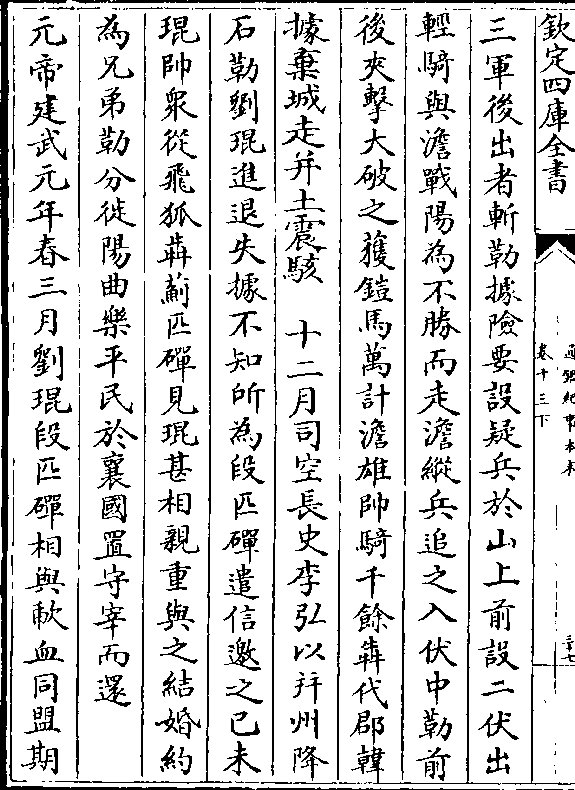 欽定四庫全書
通鑑紀事本末
卷十三下
三十七
三軍後出者斬勒據險要設疑兵於山上前設二伏出
輕騎與澹戰陽為不勝而走澹縱兵追之入伏中勒前
後夾擊大破之獲鎧馬萬計澹雄帥騎千餘犇代郡韓
據棄城走并土震駭　十二月司空長史李弘以并州降
石勒劉琨進退失據不知所為段匹磾遣信邀之己未
琨帥衆從飛狐犇薊匹磾見琨甚相親重與之結婚約
為兄弟勒分徙陽曲樂平民於襄國置守宰而還
元帝建武元年春三月劉琨段匹磾相與歃血同盟期